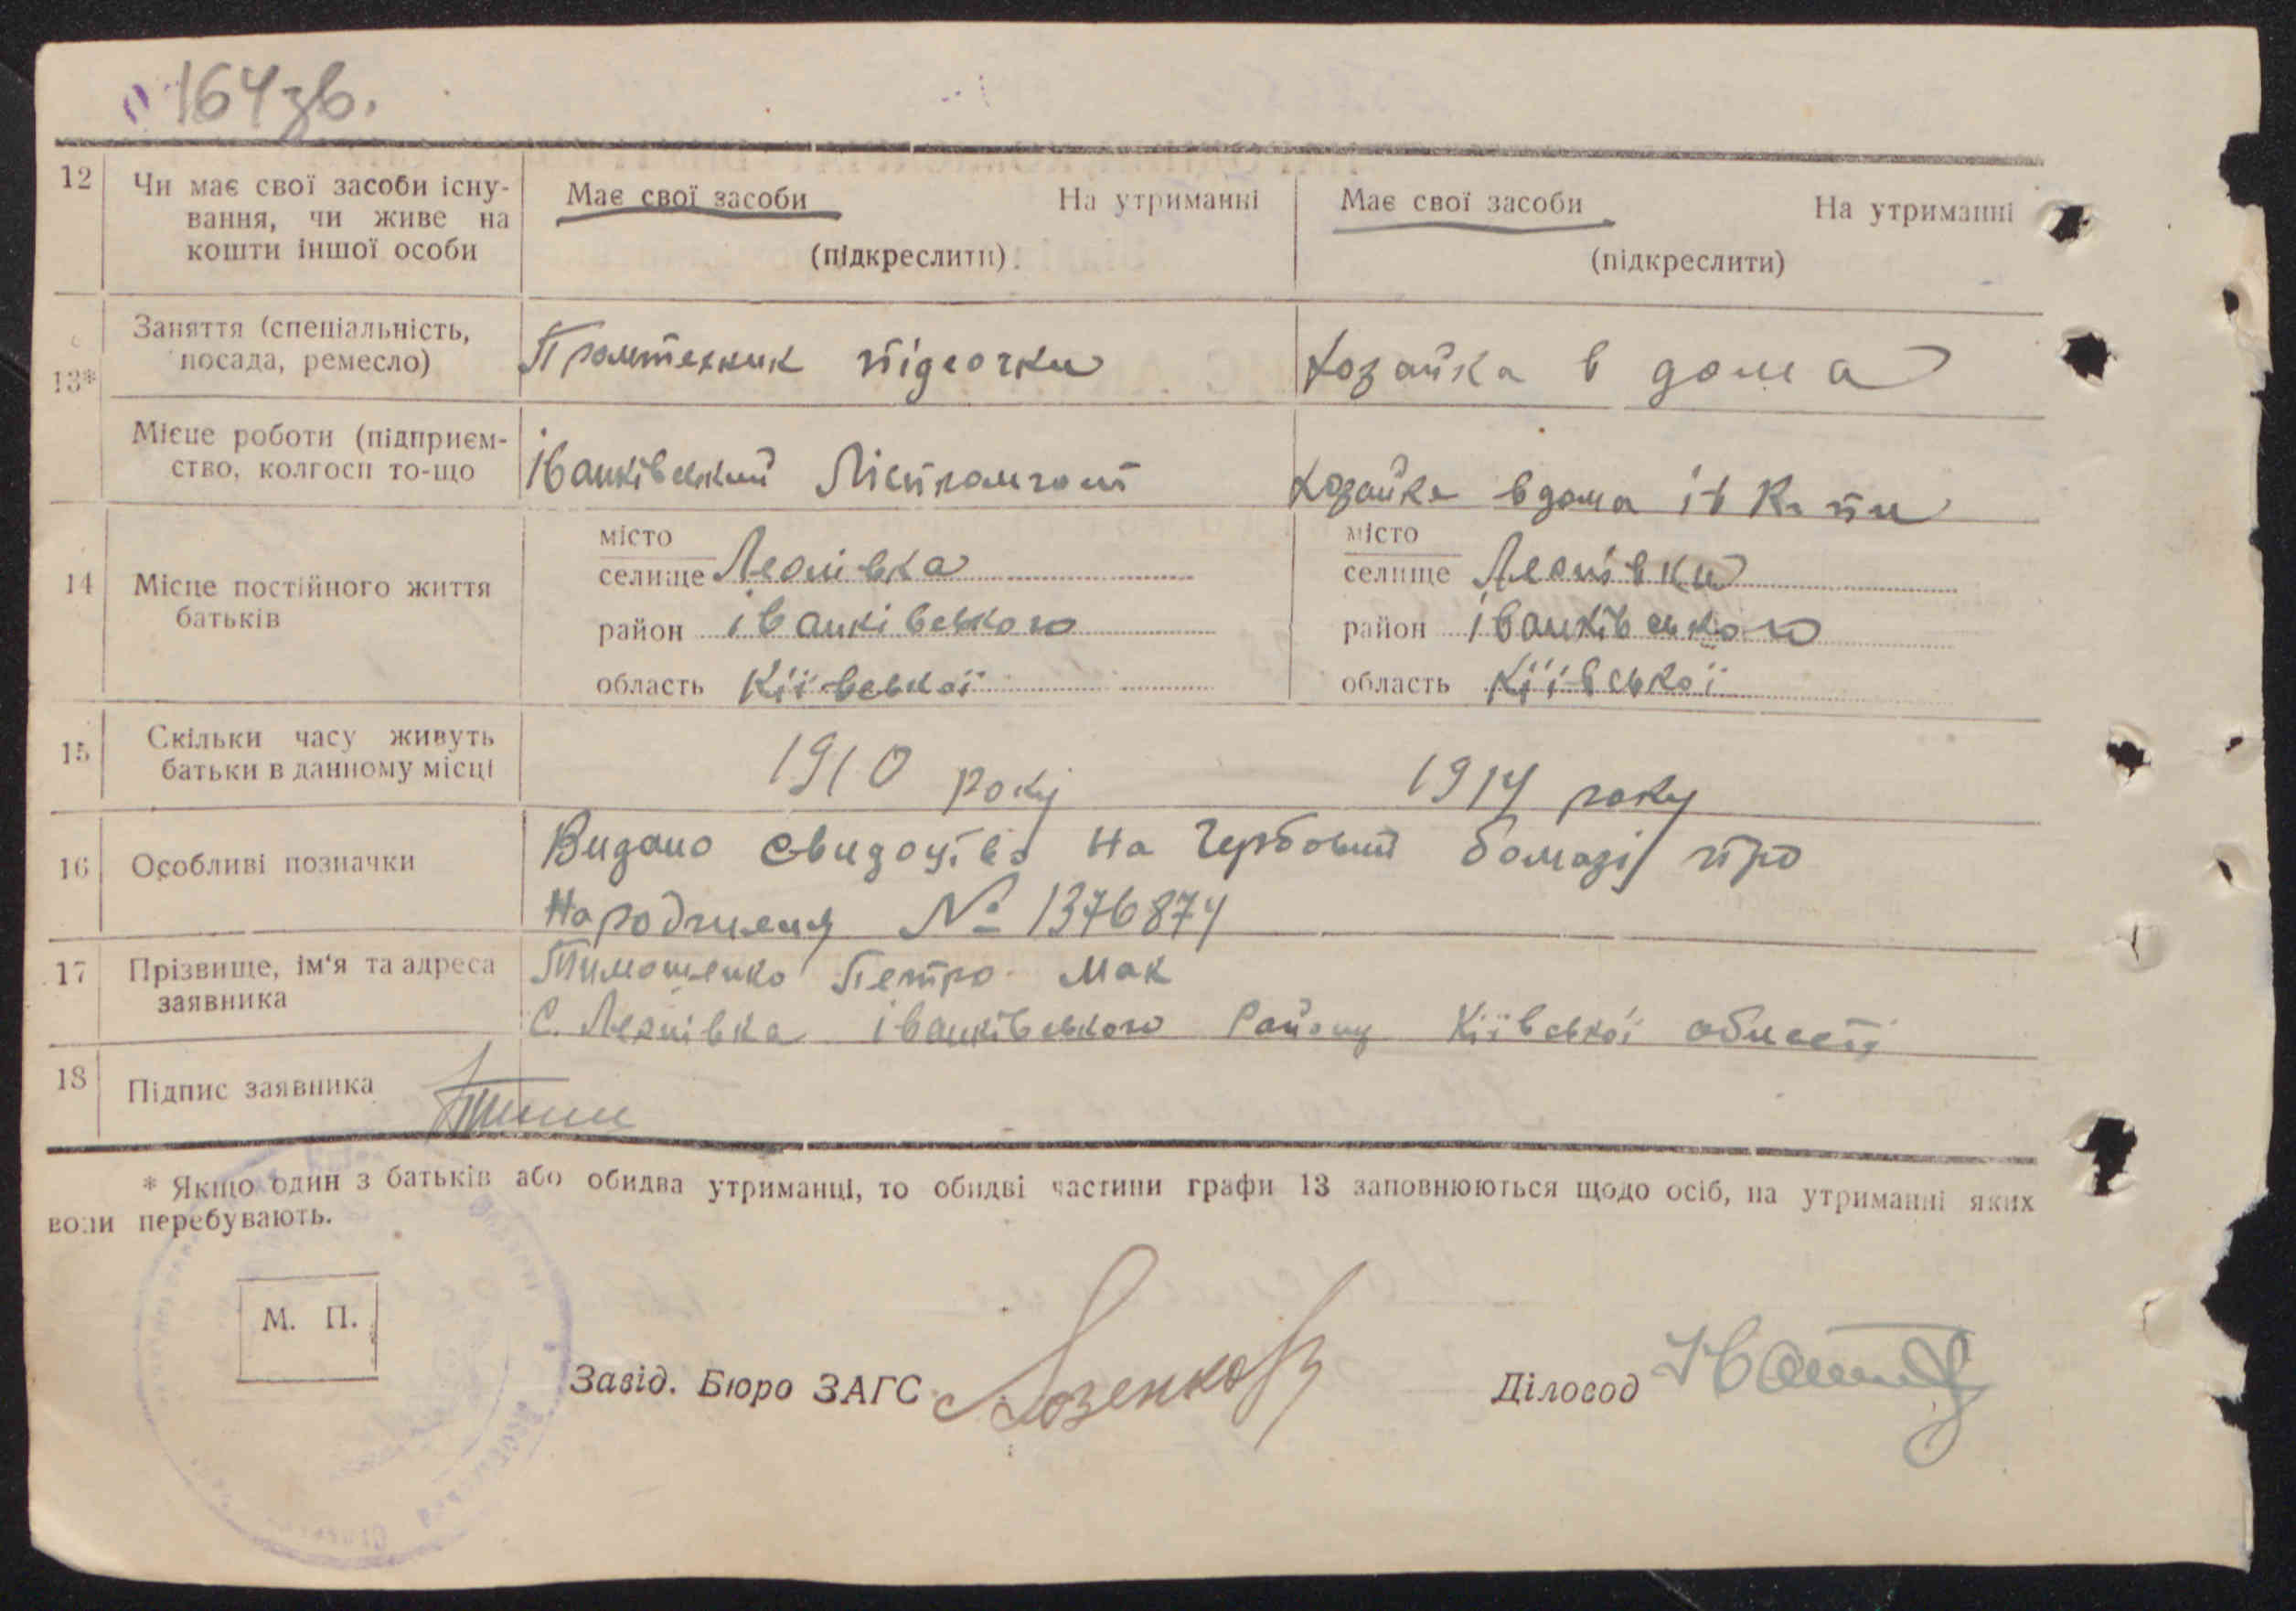 164 зв.
12 Чи має свої засоби існу-
вання, чи живе на
кошти іншої особи
Має свої засоби На утриманні
(підкреслити)
Має свої засоби На утриманні
(підкреслити)
13*
Заняття (спеціальність,
посада, ремесло)
Промтехник
Хозайка в дома
Місце роботи (підприєм-
ство, колгосп то-що
Іванківский Ліспромгосп
Хозайка вдома
14 Місце постійного життя
батьків
місто
селище Леонівка
район іванківського
область Кіївської
місто
селище Леонівки
район іванківського
область Кіївської
15 Скільки часу живуть
батьки в данному місці
1910 року
1914 року
16 Особливі позначки
Видано свидоцтво на Гербовий бомазі про
Народження № 1376874
17 Прізвище, ім'я та адреса
заявника
Тимошенко Петро Мак
С. Леонівка іванківського Району Кіївської області
18 Підпис заявника
* Якщо один з батьків або обидва утриманці, то обидві частини графи 13 заповнюються щодо осіб, на утриманні яких
вони перебувають.
М. П.
Завід. Бюро ЗАГС
Діловод